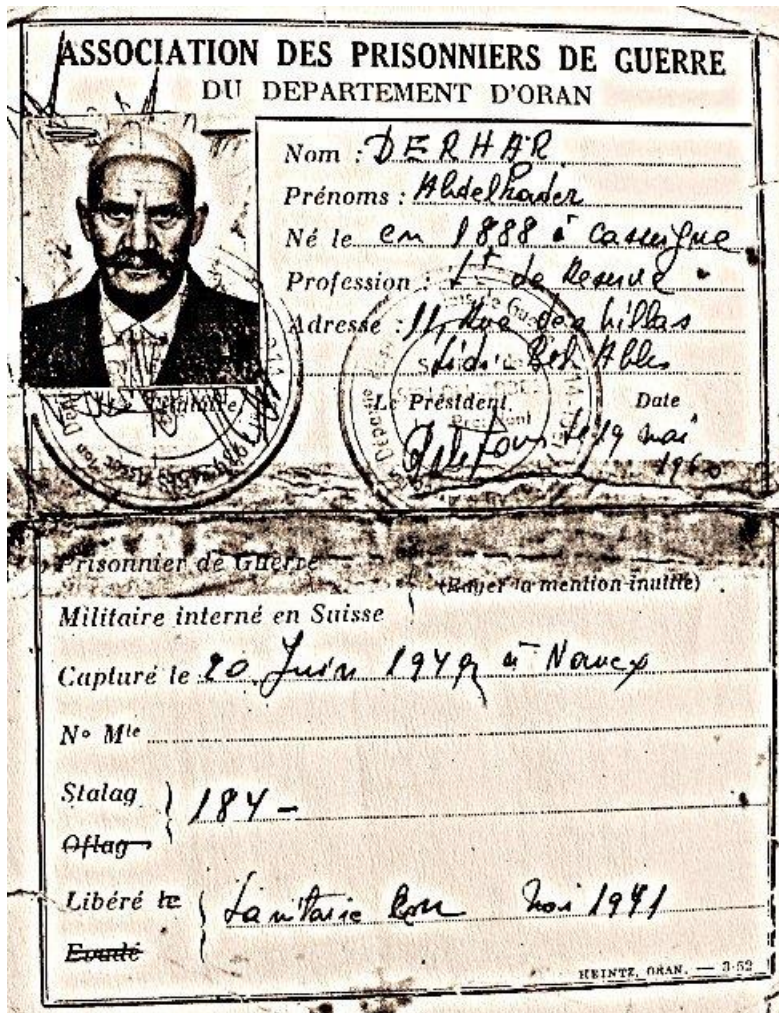 ASSOCIATION DES PRISONNIERS DE GUERRE
DU DEPARTEMENT D'ORAN
Nom : DERHAR
Prénoms : Abdelkader
Né le en 1888 à cassaigne
Profession : Lt de Reserve
Adresse : 11, Rue des Villas
Sidi Bel Abbes
Le Président Date
le 19 mai
1960
Titulaire
Prisonnier de Guerre
(Rayer la mention inutile)
Militaire interné en Suisse
Capturé le 20 Juin 1940 à
N° Mle
Stalag
184 -
Oflag
Libéré le
Sanitaire Mai 1941
Evadé
HEINTZ, ORAN. — 3-52